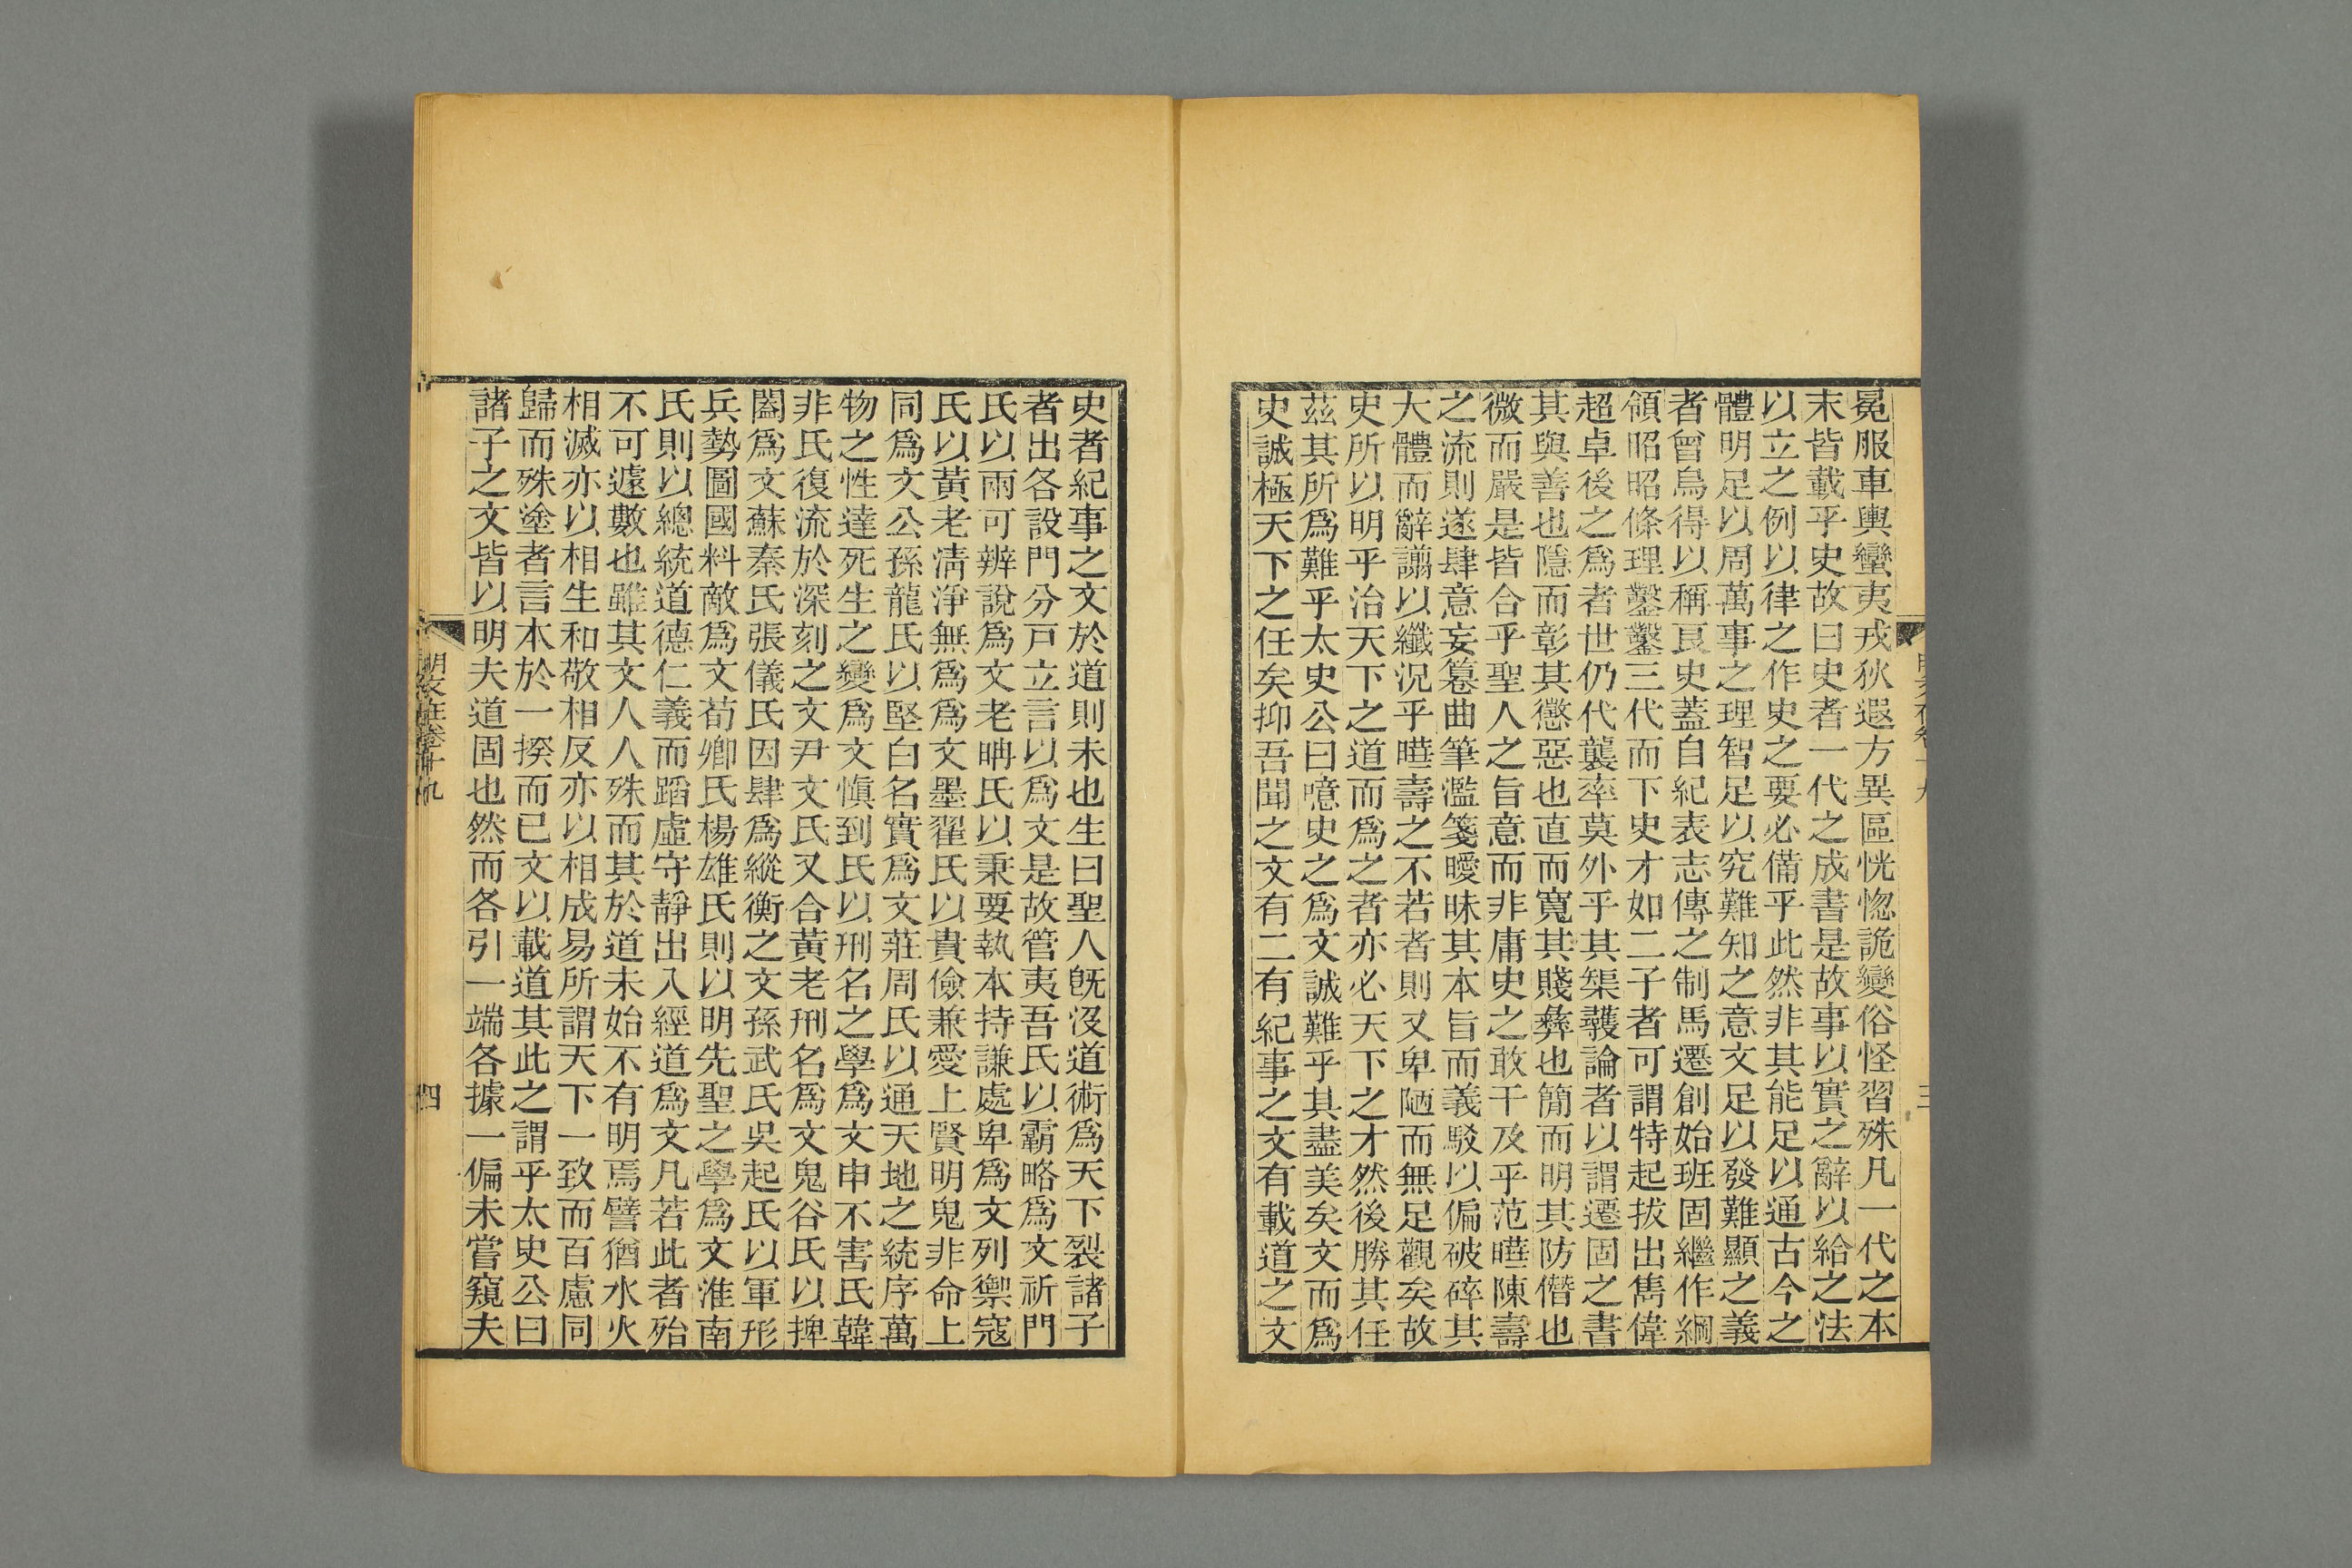 冕服車輿蠻夷戎狄遐方異區恍惚詭變俗怪習殊凡一代之本
末皆載乎史故曰史者一代之成書是故事以實之辭以給之法
以立之例以律之作史之要必備乎此然非其能足以通古今之
體明足以周萬事之理智足以究難知之意文足以發難顯之義
者曾烏得以稱良史蓋自紀表志傳之制馬遷創始班固繼作綱
領昭昭條理鑿鑿三代而下史才如二子者可謂特起拔出雋偉
超卓後之爲者世仍代襲率莫外乎其榘蒦論者以謂遷固之書
其與善也隱而彰其懲惡也直而寬其賤彝也簡而明其防僭也
微而嚴是皆合乎聖人之旨意而非庸史之敢干及乎范曄陳壽
之流則遂肆意妄纂曲筆濫箋曖昧其本旨而義駁以偏破碎其
大體而辭謭以纖況乎曄壽之不若者則又卑陋而無足觀矣故
史所以明乎治天下之道而爲之者亦必天下之才然後勝其任
茲其所爲難乎太史公曰噫史之爲文誠難乎其盡美矣文而爲
史誠極天下之任矣抑吾聞之文有二有紀事之文有載道之文
三
史者紀事之文於道則未也生曰聖人旣沒道術爲天下裂諸子
者出各設門分戸立言以爲文是故管夷吾氏以霸略爲文祈門
氏以兩可辨說爲文老聃氏以秉要執本持謙處卑爲文列禦寇
氏以黃老淸淨無爲爲文墨翟氏以貴儉兼愛上賢明鬼非命上
同爲文公孫龍氏以堅白名實爲文莊周氏以通天地之統序萬
物之性達死生之變爲文愼到氏以刑名之學爲文申不害氏韓
非氏復流於深刻之文尹文氏又合黃老刑名爲文鬼谷氏以捭
闔爲文蘇秦氏張儀氏因肆爲縱衡之文孫武氏吳起氏以軍形
兵勢圖國料敵爲文荀卿氏楊雄氏則以明先聖之學爲文淮南
氏則以總統道德仁義而蹈虛守靜出入經道爲文凡若此者殆
不可遽數也雖其文人人殊而其於道未始不有明焉譬猶水火
相滅亦以相生和敬相反亦以相成易所謂天下一致而百慮同
歸而殊塗者言本於一揆而已文以載道其此之謂乎太史公曰
諸子之文皆以明夫道固也然而各引一端各據一偏未嘗窺夫
明文在卷十九
四